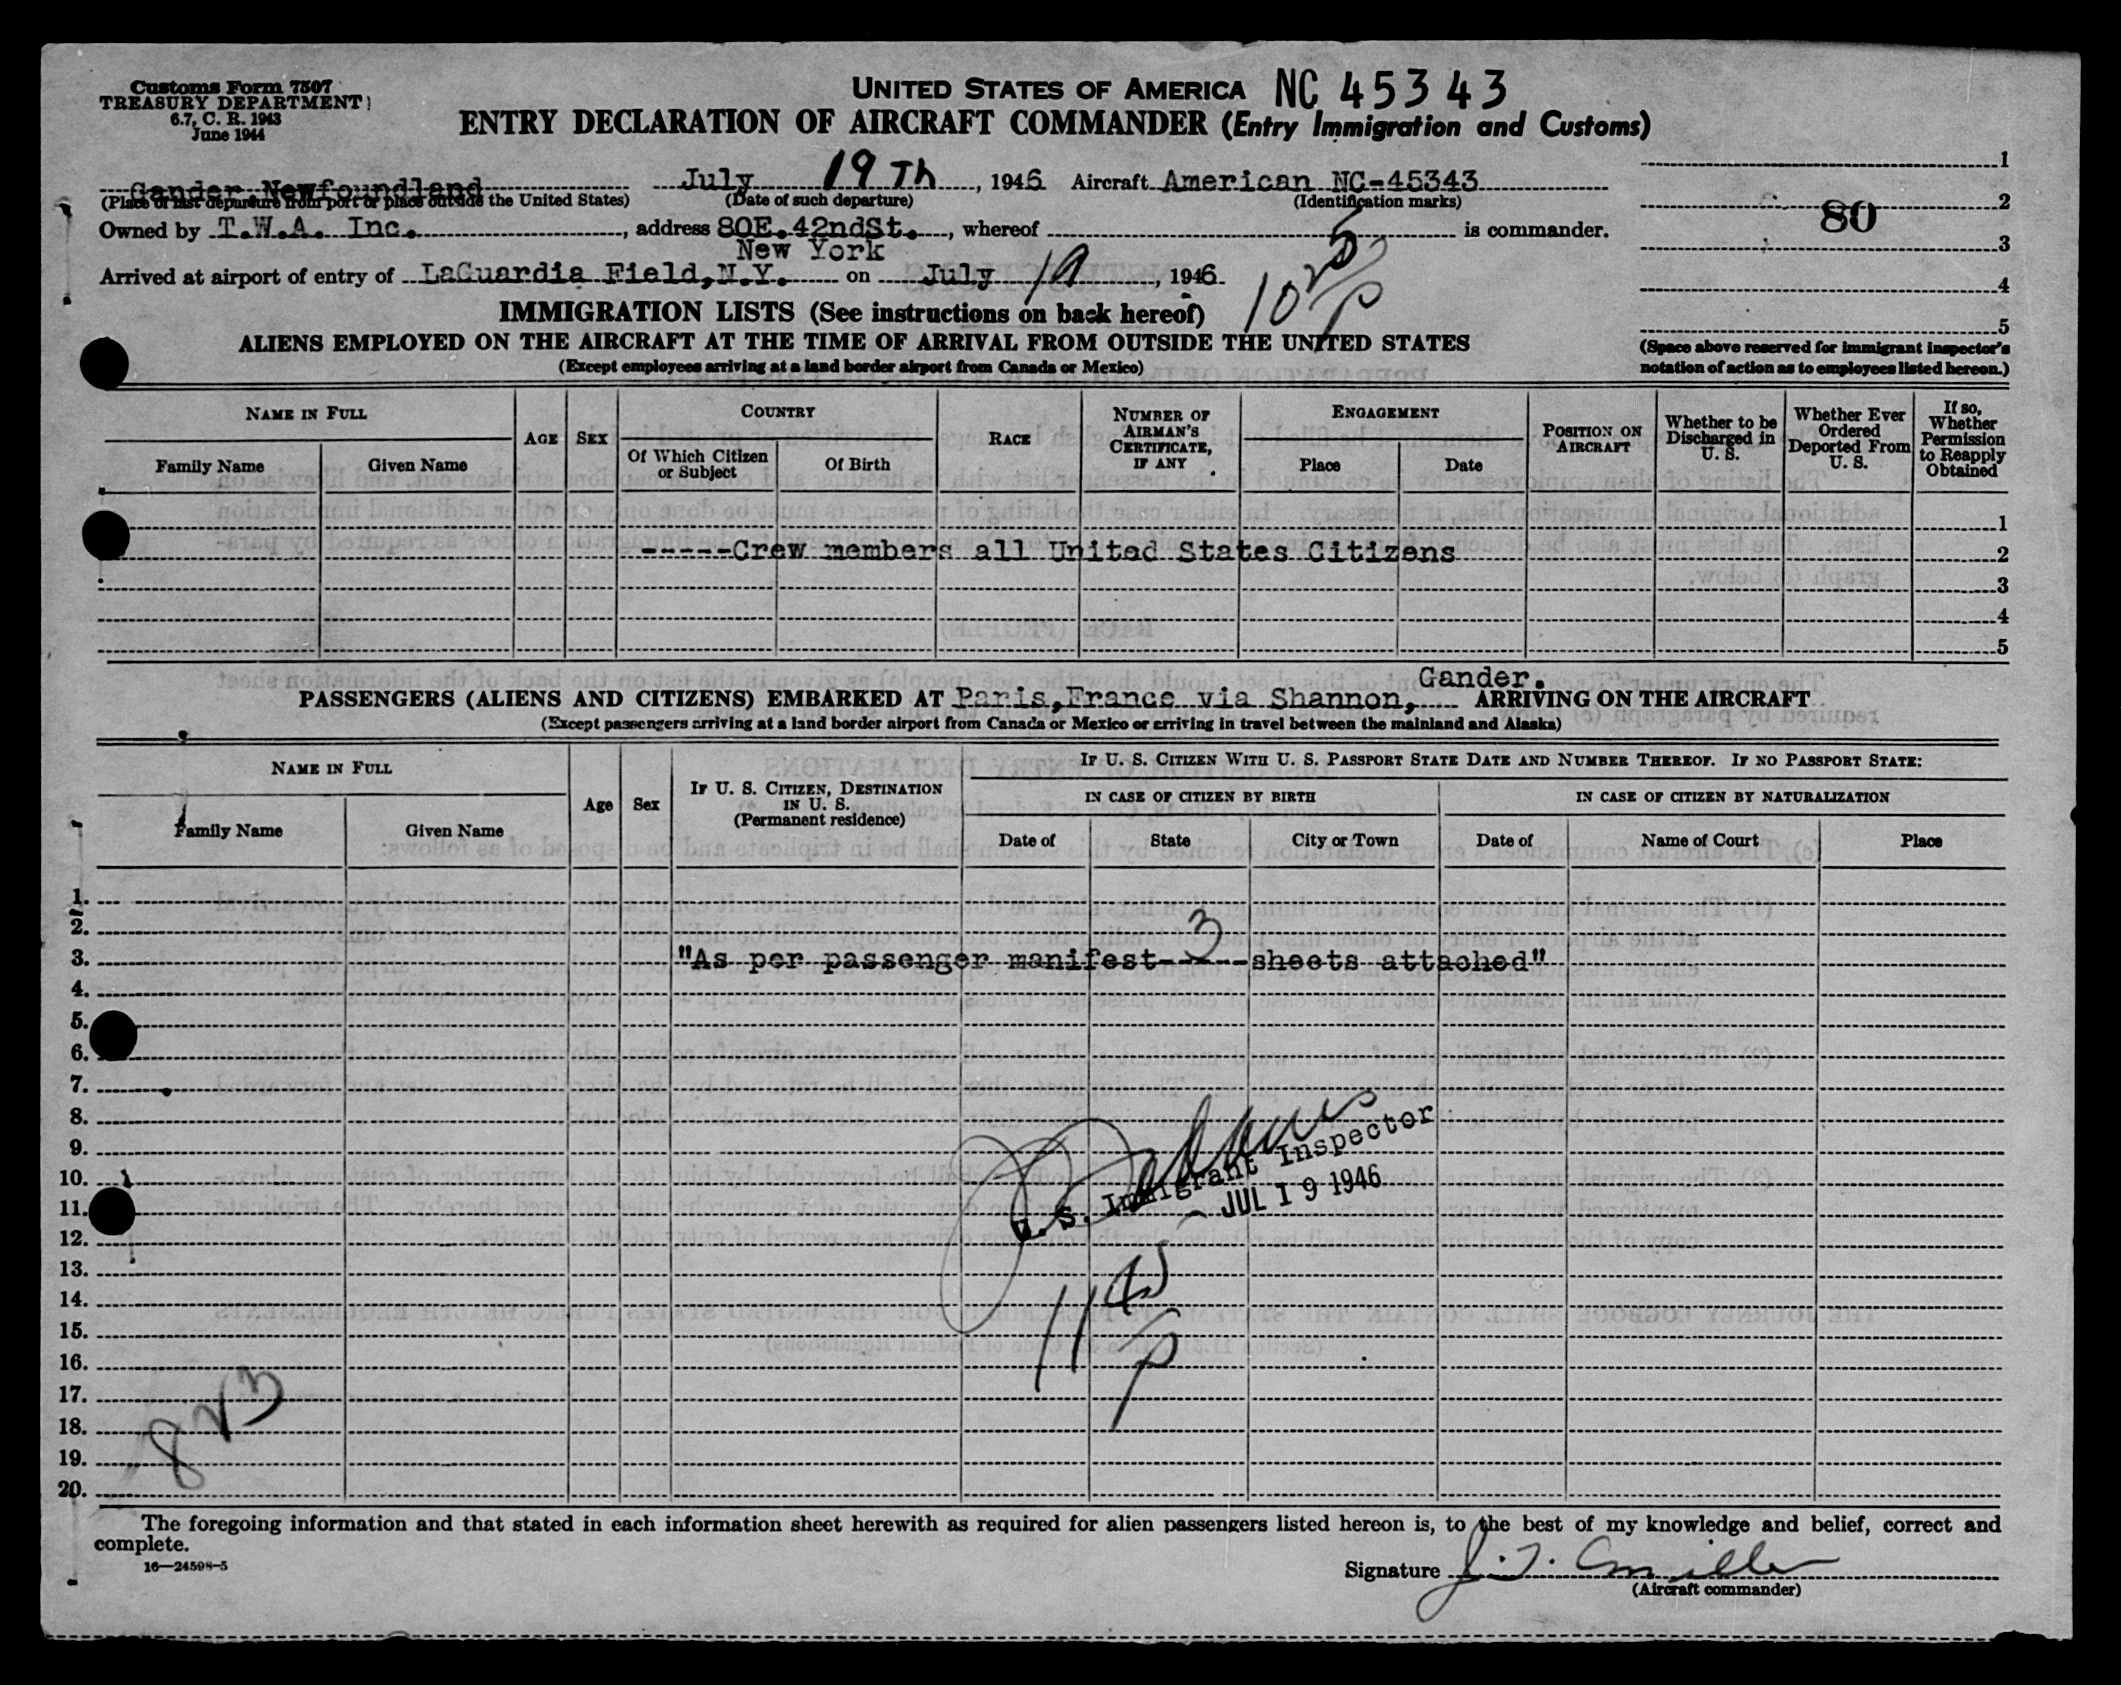 Customs Form 7507
TREASURY DEPARTMENT
6.7, C. R. 1943
June 1944
UNITED STATES OF AMERICA NC 45343
ENTRY DECLARATION OF AIRCRAFT COMMANDER (Entry Immigration and Customs)
Gander Newfoundland July 19Th, 1946 Aircraft American NC-45343
(Place of last departure from port or place outside the United States) (Date of such departure) (Identification marks)
Owned by T.W.A. Inc., address 80E.42ndSt., whereof is commander.
New York
Arrived at airport of entry of LaGuardia Field,N.Y. on July 19, 1946
10 25 P
1
2
80
3
4
5
(Space above reserved for immigrant inspector's
notation of action as to employees listed hereon.)
IMMIGRATION LISTS (See instructions on back hereof)
ALIENS EMPLOYED ON THE AIRCRAFT AT THE TIME OF ARRIVAL FROM OUTSIDE THE UNITED STATES
(Except employees arriving at a land border airport from Canada or Mexico)
NAME IN FULL
Family Name Given Name
AGE SEX
COUNTRY
Of Which Citizen or Subject Of Birth
RACE
NUMBER OF AIRMAN'S CERTIFICATE, IF ANY
ENGAGEMENT
Place Date
POSITION ON AIRCRAFT
Whether to be Discharged in U. S.
Whether Ever Ordered Deported From U. S.
If so, Whether Permission to Reapply Obtained
1
-----Crew members all United States Citizens 2
3
4
5
Gander.
PASSENGERS (ALIENS AND CITIZENS) EMBARKED AT Paris,France via Shannon, ARRIVING ON THE AIRCRAFT
(Except passengers arriving at a land border airport from Canada or Mexico or arriving in travel between the mainland and Alaska)
NAME IN FULL
Family Name Given Name
Age Sex
IF U. S. CITIZEN, DESTINATION IN U. S.
(Permanent residence)
IF U. S. CITIZEN WITH U. S. PASSPORT STATE DATE AND NUMBER THEREOF. IF NO PASSPORT STATE:
IN CASE OF CITIZEN BY BIRTH IN CASE OF CITIZEN BY NATURALIZATION
Date of State City or Town Date of Name of Court Place
1.
2.
3. "As per passenger manifest--3---sheets attached"
4.
5.
6.
7.
8.
9.
10.
U. S. Immigrant Inspector
11.
JUL 19 1946
12.
13.
14.
11 45 P
15.
16.
17.
823
18.
19.
20.
The foregoing information and that stated in each information sheet herewith as required for alien passengers listed hereon is, to the best of my knowledge and belief, correct and
complete.
16—24598-5
Signature J. T. Miller
(Aircraft commander)